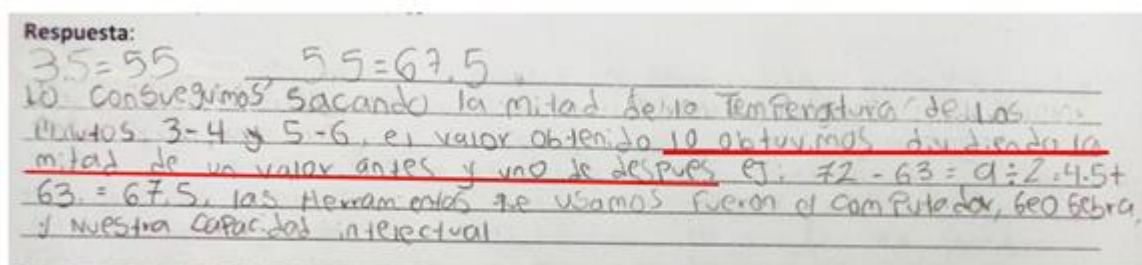 Respuesta:
3.5=55 5.5=67.5
lo consueguimos sacando la mitad de la Temperatura de los
minutos 3-4 y 5-6, el valor obtenido lo obtuvimos dividiendo la
mitad de un valor antes y uno de despues ej: 72-63=9÷2=4.5+
63.=67.5, las Herramientas que usamos fueron el computador, GeoGebra,
y nuestra capacidad intelectual